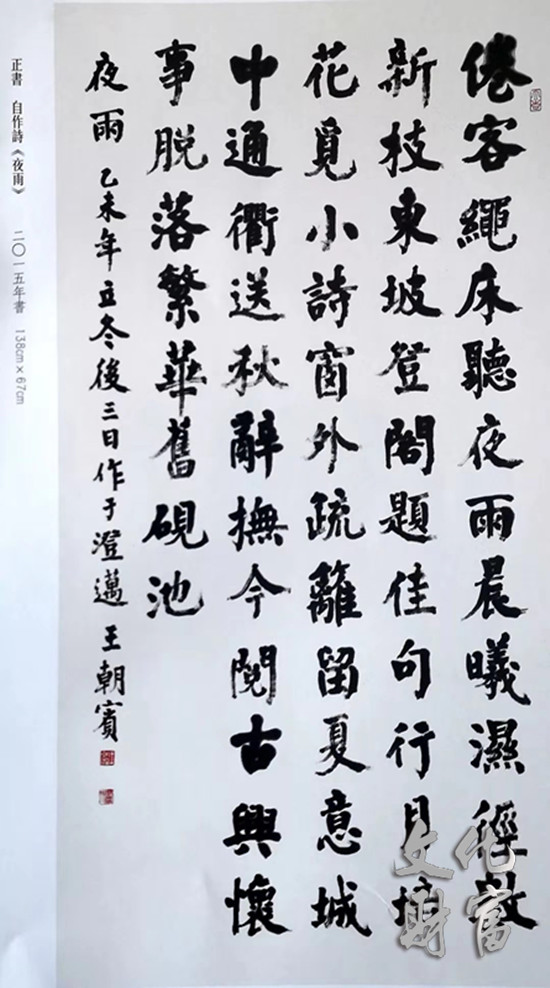 倦客繩床聽夜雨晨曦濕徑
新枝東坡登閣題佳句行
花覓小詩窗外疏籬留夏意城
中通衢送秋辭撫今閱古興懷
事脫落繁華舊硯池
夜雨 乙未年立冬後三日作于澄邁 王朝賓
正書 自作詩《夜雨》 二〇一五年書 138cm×67cm
文化
財富